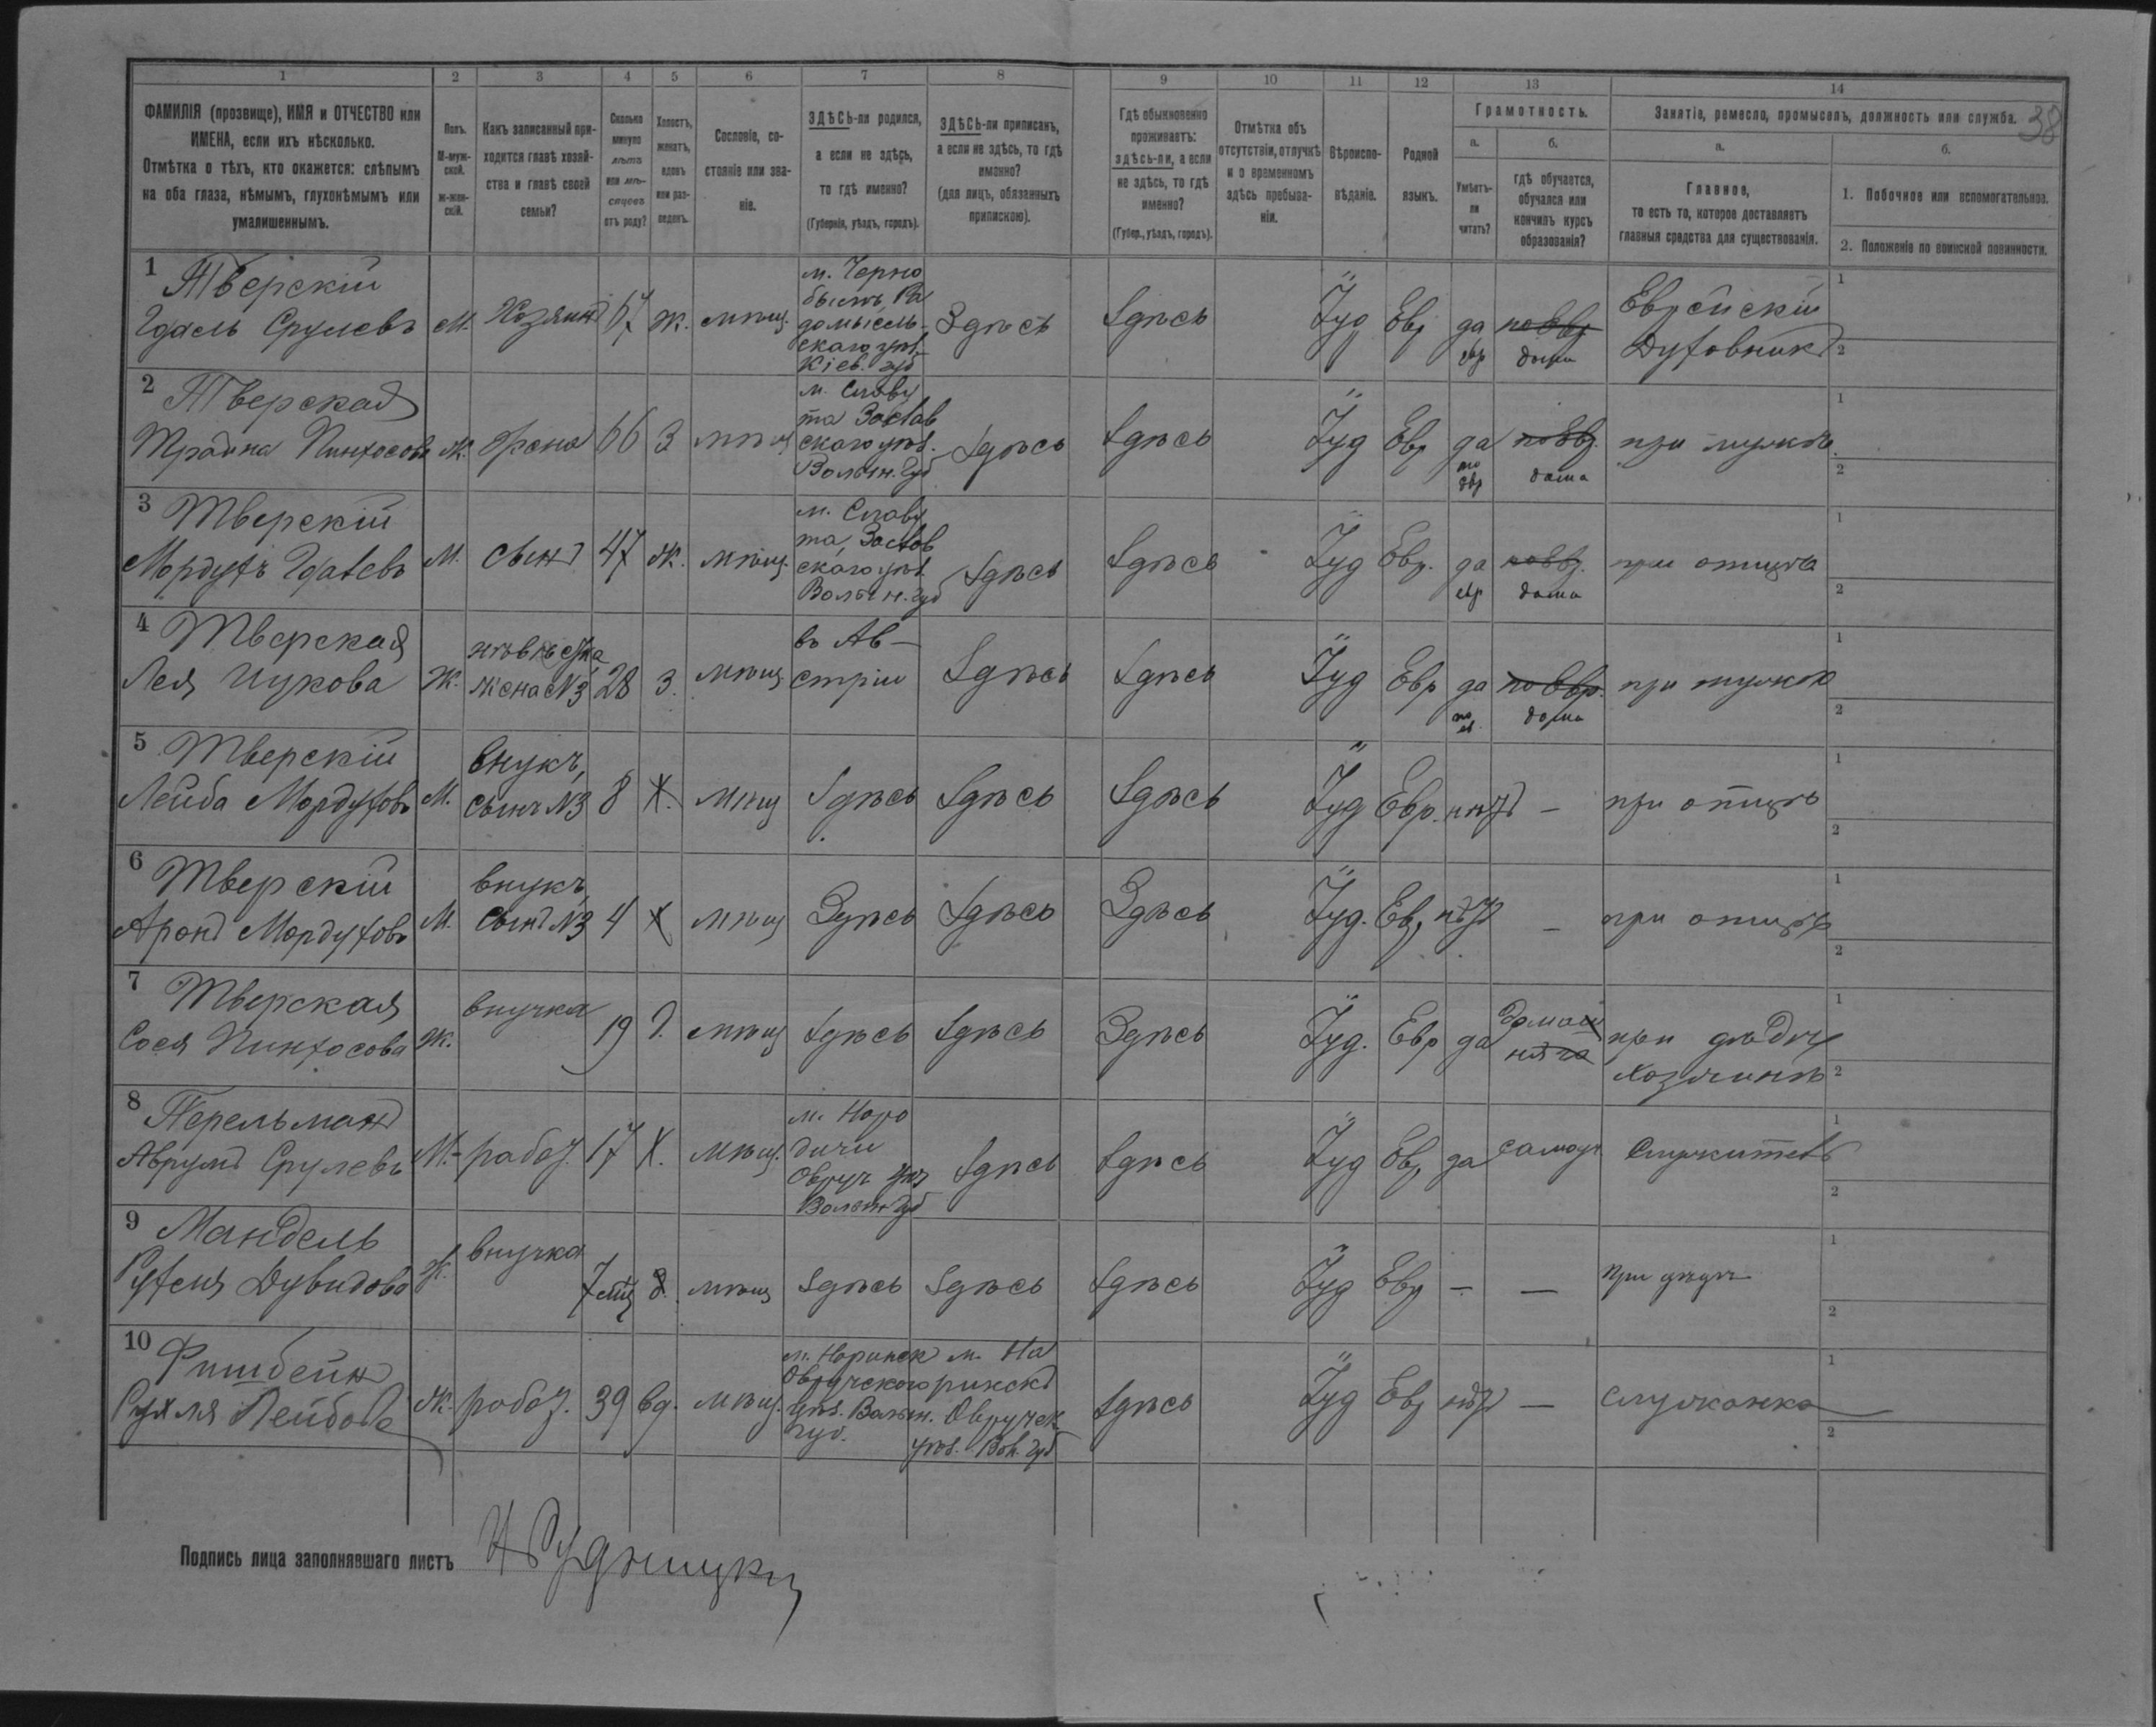 1 2 3 4 5 6 7 8 9 10 11 12 13 14
38
ФАМИЛІЯ (прозвище), ИМЯ и ОТЧЕСТВО или
ИМЕНА, если ихъ нѣсколько.
Отмѣтка о тѣхъ, кто окажется: слѣпымъ
на оба глаза, нѣмымъ, глухонѣмымъ или
умалишеннымъ.
Полъ.
М-муж-
ской.
ж-жен-
скій.
Какъ записанный при-
ходится главѣ хозяй-
ства и главѣ своей
семьи?
Сколько
минуло
лѣтъ
или мѣ-
сяцевъ
отъ роду?
Холостъ,
женатъ,
вдовъ
или раз-
веденъ.
Сословіе, со-
стояніе или зва-
ніе.
ЗДѢСЬ-ли родился,
а если не здѣсь,
то гдѣ именно?
(Губернія, уѣздъ, городъ).
ЗДѢСЬ-ли приписанъ,
а если не здѣсь, то гдѣ
именно?
(для лицъ, обязанныхъ
припискою).
Гдѣ обыкновенно
проживаетъ:
здѣсь-ли, а если
не здѣсь, то гдѣ
именно?
(Губер., уѣздъ, городъ).
Отмѣтка объ
отсутствіи, отлучкѣ
и о временномъ
здѣсь пребыва-
ніи.
Вѣроиспо-
вѣданіе.
Родной
языкъ.
Грамотность.
а.
Умѣетъ-
ли
читать?
б.
гдѣ обучается,
обучался или
кончилъ курсъ
образованія?
Занятіе, ремесло, промыселъ, должность или служба.
а.
Главное,
то есть то, которое доставляетъ
главныя средства для существованія.
б.
1. Побочное или вспомогательное.
2. Положеніе по воинской повинности.
1 Тверскій
Гдаль Срулевъ М. Хозяинъ 67 ж. мѣщ.
м. Черно
быль, Ра
домысль
скаго уѣз.
Кіев. губ
Здѣсь Здѣсь Іуд Евр да
евр
по Евр
дома
Еврейскій
Духовникъ
1
2
2 Тверская
Пинхосова Ж. жена 66 З мѣщ
м. Славу
та Заслав
скаго уѣз.
Волын. Губ
Здѣсь Здѣсь Іуд Евр да
по
Евр
по Евр.
дома
при мужѣ.
1
2
3 Тверскій
Мордухъ Гдалевъ М. сынъ 47 Ж. мѣщ.
м. Славу
та, Заслав
скаго уѣз.
Волын. Губ
Здѣсь Здѣсь Іуд Евр. да
евр
по Евр.
дома
при отцѣ
1
2
4 Тверская
Лея Ицкова Ж.
невѣстка,
жена №3 28 З. мѣщ
въ Ав-
стріи
Здѣсь Здѣсь Іуд Евр да
по
ев.
по Евр.
дома
при мужѣ
1
2
5 Тверскій
Лейба Мордуховъ М.
внукъ,
сынъ №3 8 Х. мѣщ Здѣсь Здѣсь Здѣсь Іуд Евр. нѣтъ — при отцѣ
1
2
6 Тверскій
Аронъ Мордуховъ М.
внукъ,
сынъ №3 4 Х мѣщ Здѣсь Здѣсь Здѣсь Іуд. Евр. нѣтъ — при отцѣ
1
2
7 Тверская
Сося Пинхосова Ж. внучка 19 Д. мѣщ Здѣсь Здѣсь Здѣсь Іуд. Евр да
при дѣду
Хозяинѣ
1
2
8 Перельманъ
Аврумъ Срулевъ М. работ. 17 Х. мѣщ.
м. Наро
дичи
Овруч уѣз
Волын Губ
Здѣсь Здѣсь Іуд Евр да самоуч Служитель
1
2
9 Мандель
Рухля Дувидова Ж. внучка 7 мѣс мѣщ Здѣсь Здѣсь Здѣсь Іуд Евр — — При дѣдѣ
1
2
10 Фишбейнъ
Рухля Лейбова Ж. работ. 39 вд. мѣщ.
м. Наринск
Овручского
уѣз. Волын.
губ.
м. На
ринскъ
Овручск
уѣз. Вол. губ
Здѣсь Іуд Евр нѣтъ — служанка
1
2
Подпись лица заполнявшаго листъ